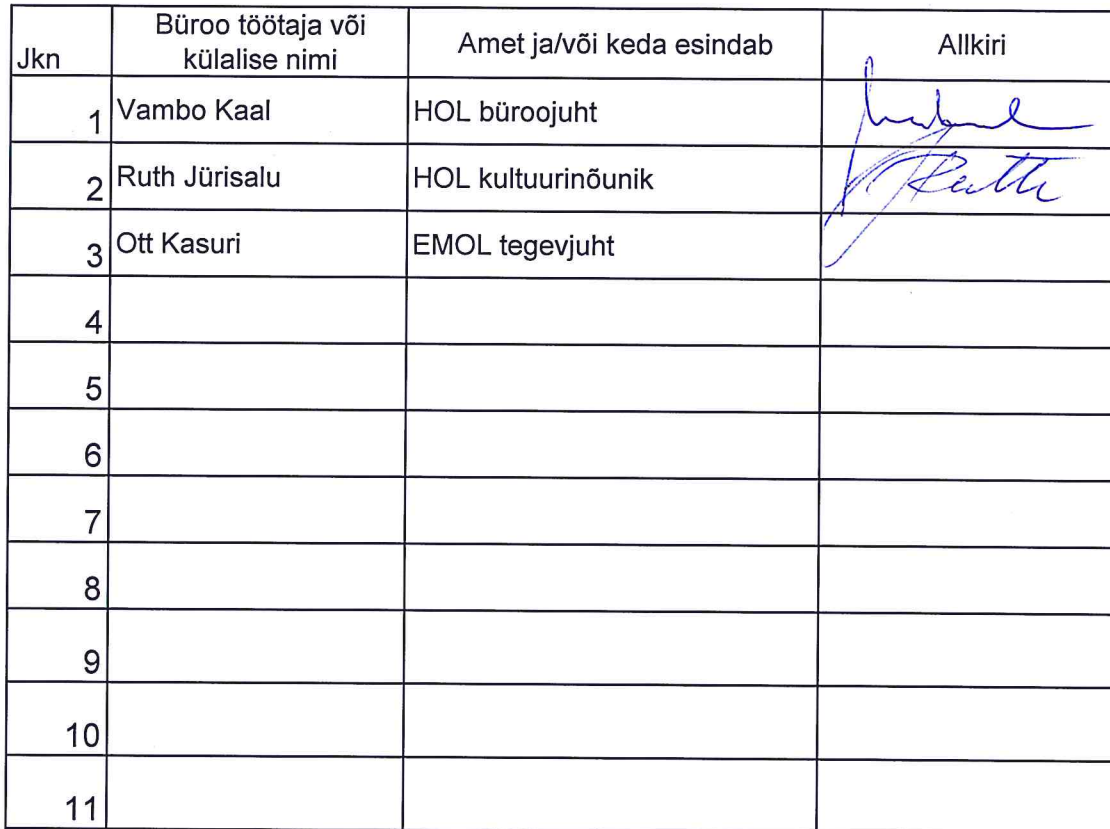 Jkn
Büroo töötaja või
külalise nimi
Amet ja/või keda esindab
Allkiri
1 Vambo Kaal HOL büroojuht
2 Ruth Jürisalu HOL kultuurinõunik
3 Ott Kasuri EMOL tegevjuht
4
5
6
7
8
9
10
11